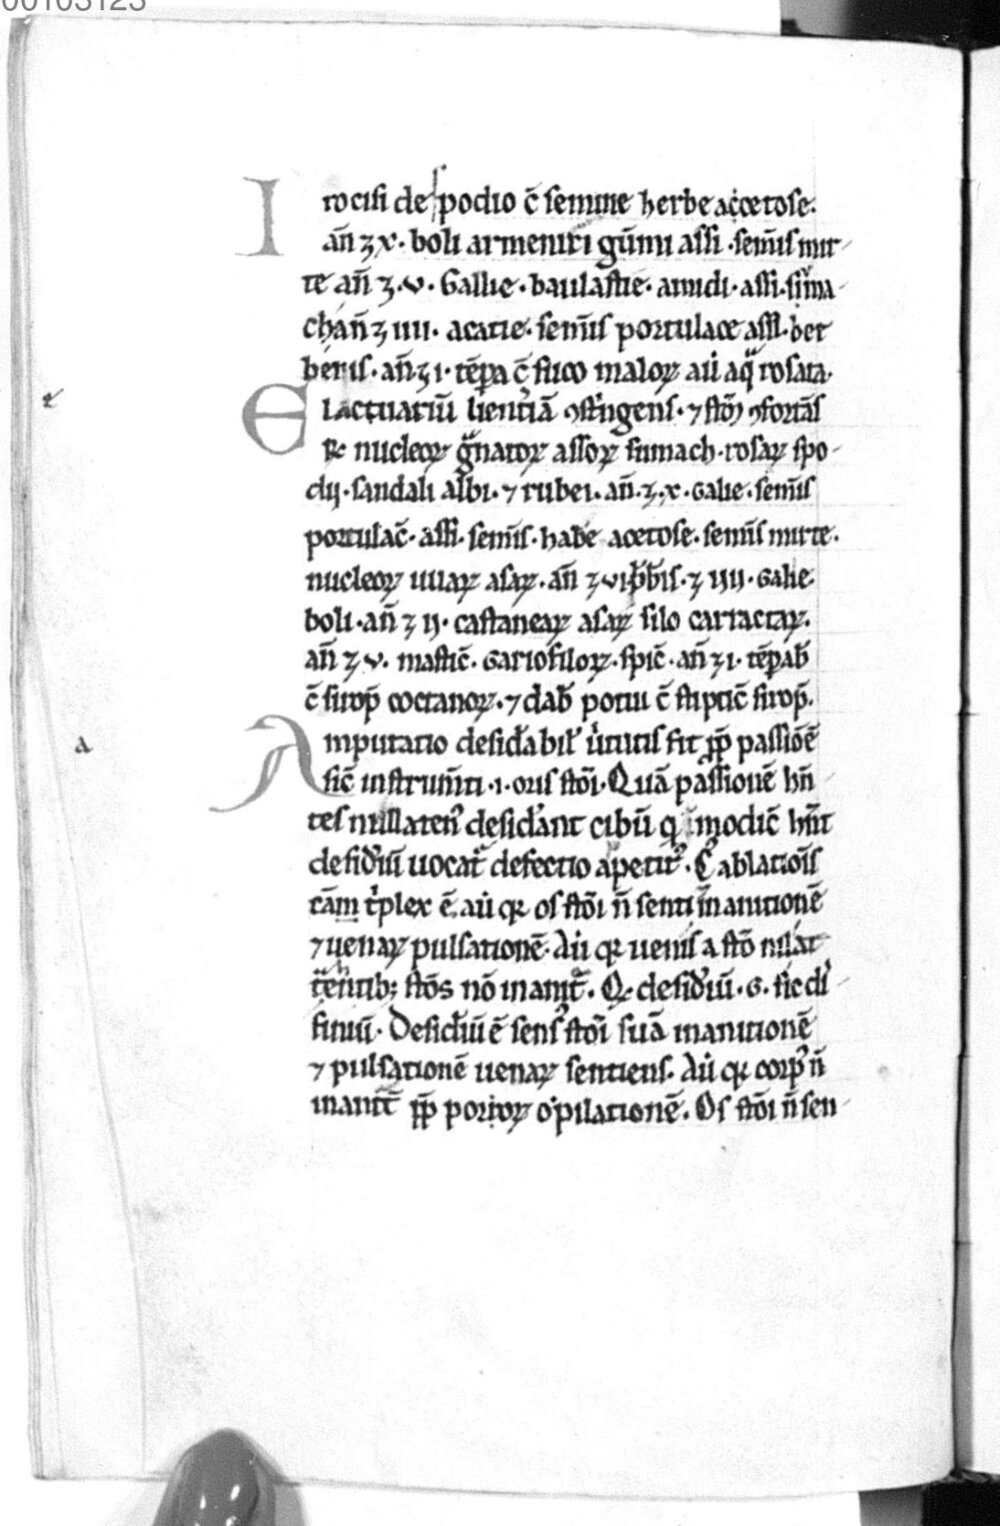 00103123
I rocisi de spodio c̄ semine herbe accetose.
an̄ ʒ x. boli armenici gūmi assi. sem̄is mir
te an̄ ʒ. v. Gallie. baulastie. amidi. assi. sūma
ch an̄ ʒ iiii. acatie. sem̄is portulace assi. ber
beris. an̄. ʒ i. tēpa c̄ suco maloꝝ aū aq̄ rosata.
e
Electuariū lienteriā ꝯstringens. ⁊ stō̄ ꝯfortās
R nucleoꝝ g̃natoꝝ assoꝝ sumach. rosaꝝ spo
dij. sandali albi. ⁊ rubei. an̄. ʒ. x. Galie. sem̄is
portulac̄. assi. sem̄is. habe acetose. sem̄is mirte.
nucleoꝝ uuaꝝ asaꝝ. an̄ ʒ vi. ʒ iiii. Galie
boli. an̄ ʒ ij. castaneaꝝ asaꝝ silo
an̄ ʒ v. mastic̄. Gariofiloꝝ. spic̄. an̄ ʒ i. tēpab̄
c̄ sirop̄ coctanoꝝ. ⁊ dab̄ potui c̄ stiptic̄ sirop̄.
a
Amputatio desid̓abil̓ ūtutis fit ꝓp̄ passiōē
sic̄ instrum̄ti. i. oris stōi. Quā passionē hn̄
tes nullaten̓ desid̓ant cibū q̓ modic̄ hn̄t
desid̓iū uocat̓ defectio apetit̓. C̓ ablatiōis
cām t̓plex ē. aū qꝛ os stōi n̄ senti inanitionē
⁊ uenaꝝ pulsationē. Aū qꝛ uenis a stō
stōs nō inanit̓. Q. desid̓iū. G. sic di
finiū. Desid̓iū ē sens̓ stōi suā inanitionē
⁊ pulsationē uenaꝝ sentiens. Aū qꝛ corp̓ n̄
inanit̄ ꝓp̄ poroꝝ opilationē. Os stōi n̄ sen